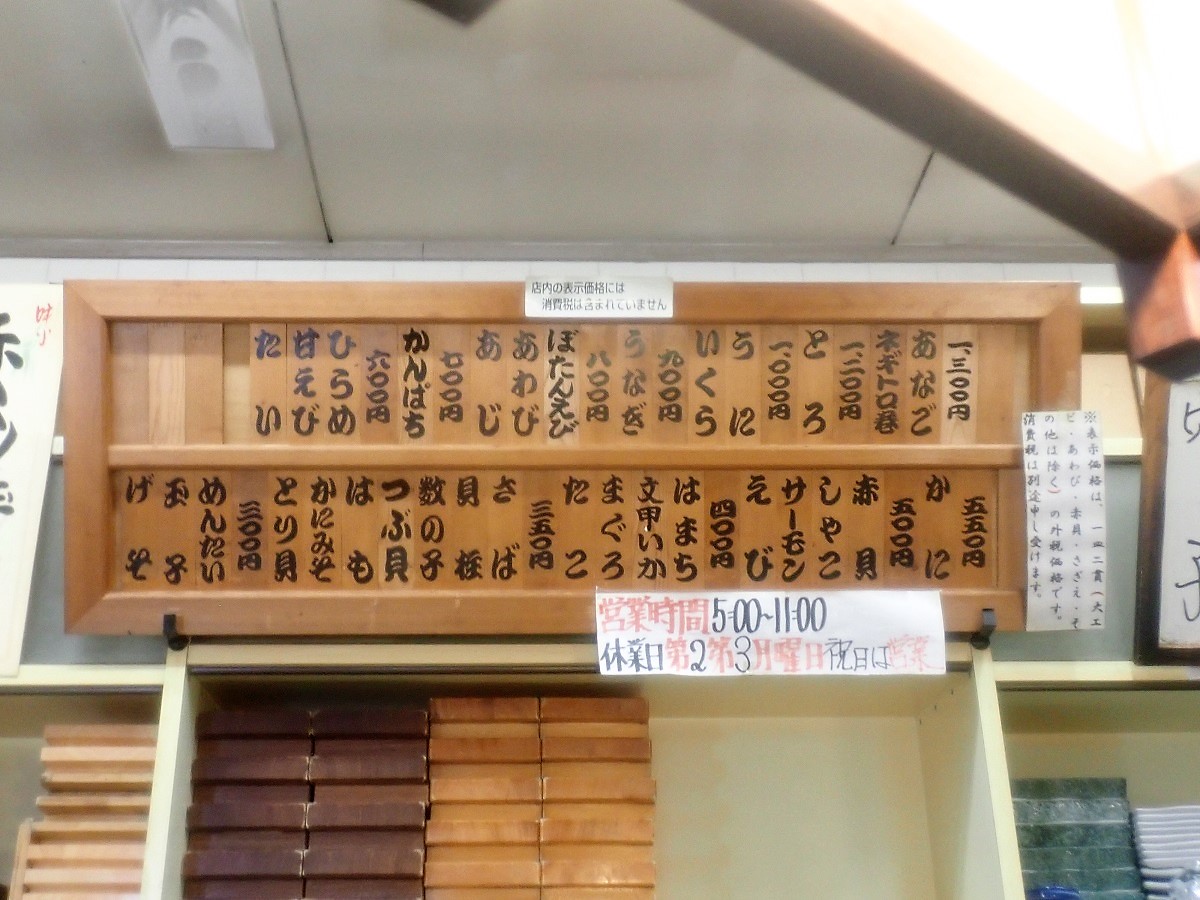 店内の表示価格には
消費税は含まれていません
一、三〇〇円
あなご
ネギトロ巻
一、二〇〇円
とろ
一、〇〇〇円
うに
いくら
九〇〇円
うなぎ
八〇〇円
ぼたんえび
あわび
あじ
七〇〇円
かんぱち
六〇〇円
ひらめ
甘えび
たい
五五〇円
かに
五〇〇円
赤貝
しゃこ
サーモン
えび
四〇〇円
はまち
文甲いか
まぐろ
たこ
三五〇円
さば
貝柱
数の子
つぶ貝
はも
かにみそ
とり貝
三〇〇円
めんたい
玉子
げそ
※表示価格は、一皿二貫(大工
ビ・あわび・赤貝・さざえ・そ
の他は除く)の外税価格です。
消費税は別途申し受けます。
営業時間5:00~11:00
休業日第2第3月曜日祝日は営業